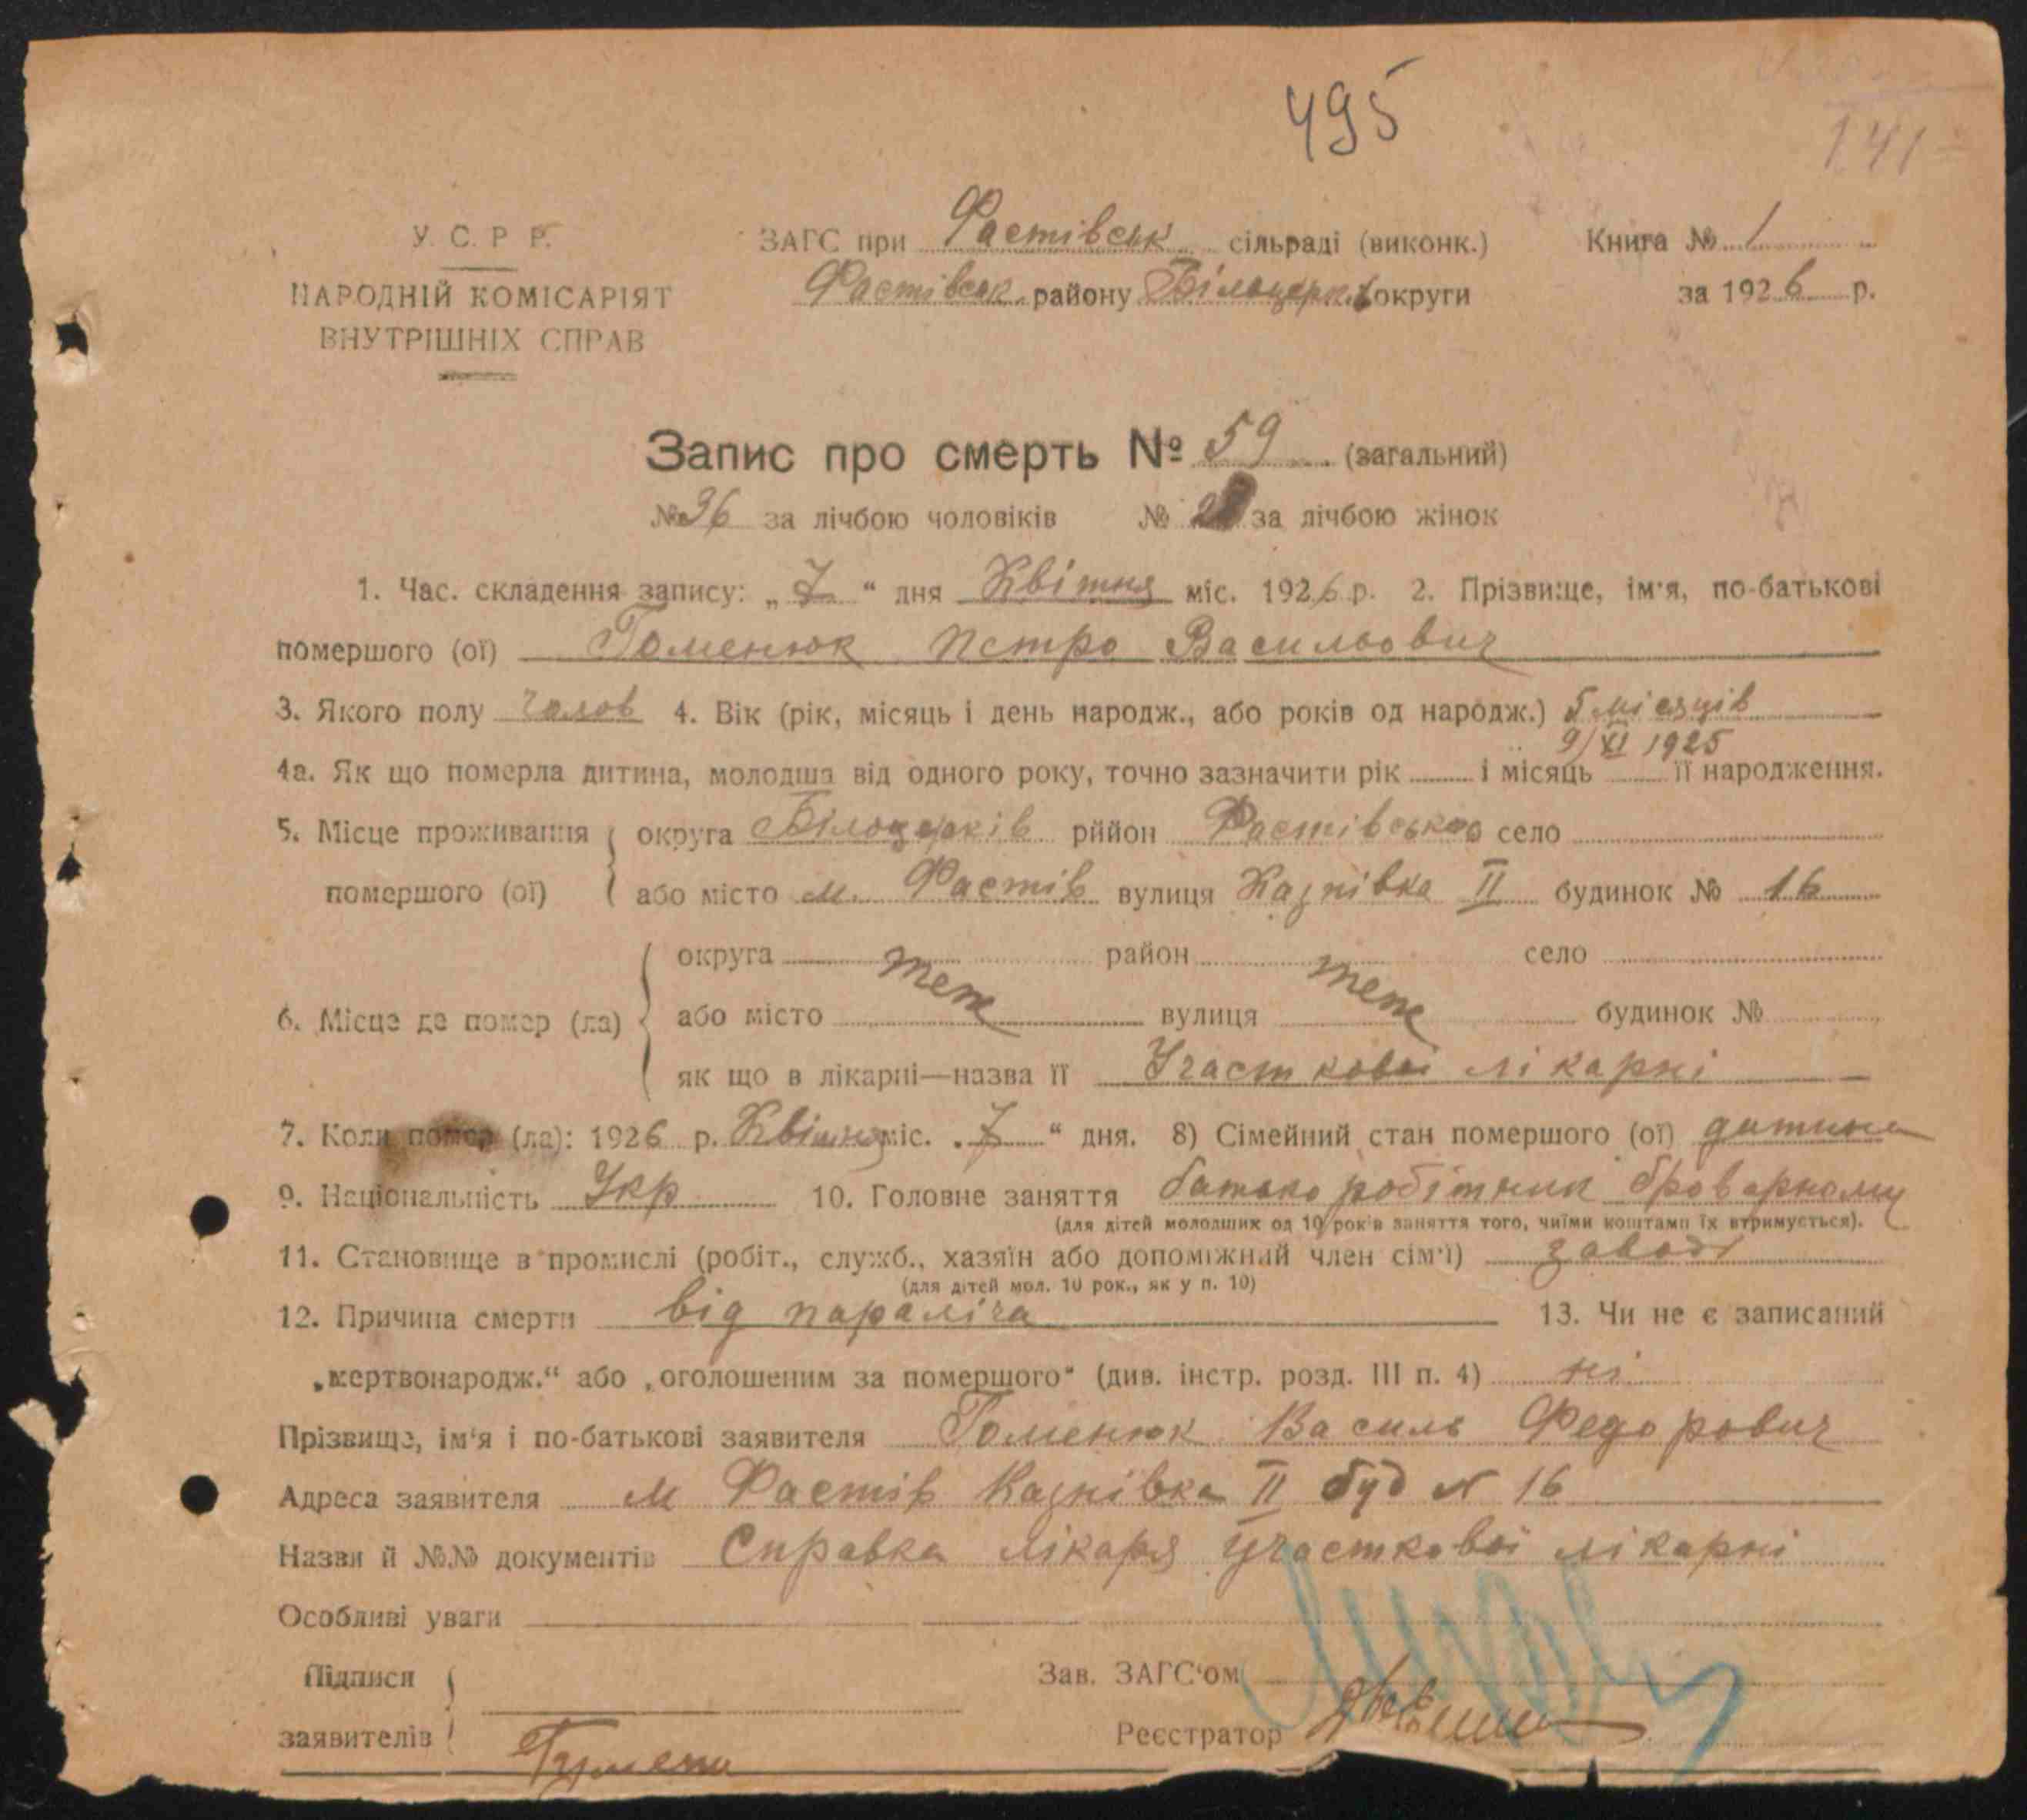 495
141
У. С. Р. Р.
НАРОДНІЙ КОМІСАРІЯТ
ВНУТРІШНІХ СПРАВ
ЗАГС при Фастівськ сільраді (виконк.)
Фастівськ. району Білоцерків округи
Книга № 1
за 1926 р.
Запис про смерть № 59 (загальний)
№ 36 за лічбою чоловіків № за лічбою жінок
1. Час. складення запису: „7“ дня Квітня міс. 1926 р. 2. Прізвище, ім'я, по-батькові
помершого (ої) Гоменюк Петро Васильович
3. Якого полу чолов 4. Вік (рік, місяць і день народж., або років од народж.) 5 місяців
9/XI 1925
4а. Як що померла дитина, молодша від одного року, точно зазначити рік і місяць її народження.
5. Місце проживання помершого (ої) округа Білоцерків рийон Фастівського село
або місто м. Фастів вулиця Казнівка II будинок № 16
6. Місце де помер (ла) округа теж район теж село
або місто вулиця будинок №
як що в лікарні—назва її Участкової лікарні
7. Коли помер (ла): 1926 р. Квітня міс. „7“ дня. 8) Сімейний стан помершого (ої) дитина
9. Національність Укр 10. Головне заняття батько робітник броварному
(для дітей молодших од 10 років заняття того, чиїми коштами їх втримується).
11. Становище в промислі (робіт., служб., хазяїн або допоміжний член сім'ї) заводі
(для дітей мол. 10 рок., як у п. 10)
12. Причина смерти від параліча 13. Чи не є записаний
„мертвонародж.“ або „оголошеним за помершого“ (див. інстр. розд. III п. 4) ні
Прізвище, ім'я і по-батькові заявителя Гоменюк Василь Федорович
Адреса заявителя м Фастів Казнівка II буд № 16
Назви й №№ документів Справка лікаря Участкової лікарні
Особливі уваги
Підписи заявителів
Зав. ЗАГС'ом
Реєстратор